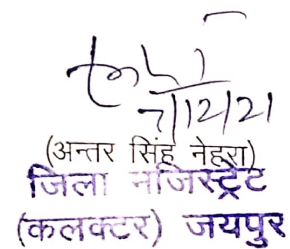 7/12/21
(अन्तर सिंह नेहरा)
जिला मजिस्ट्रेट
(कलक्टर) जयपुर